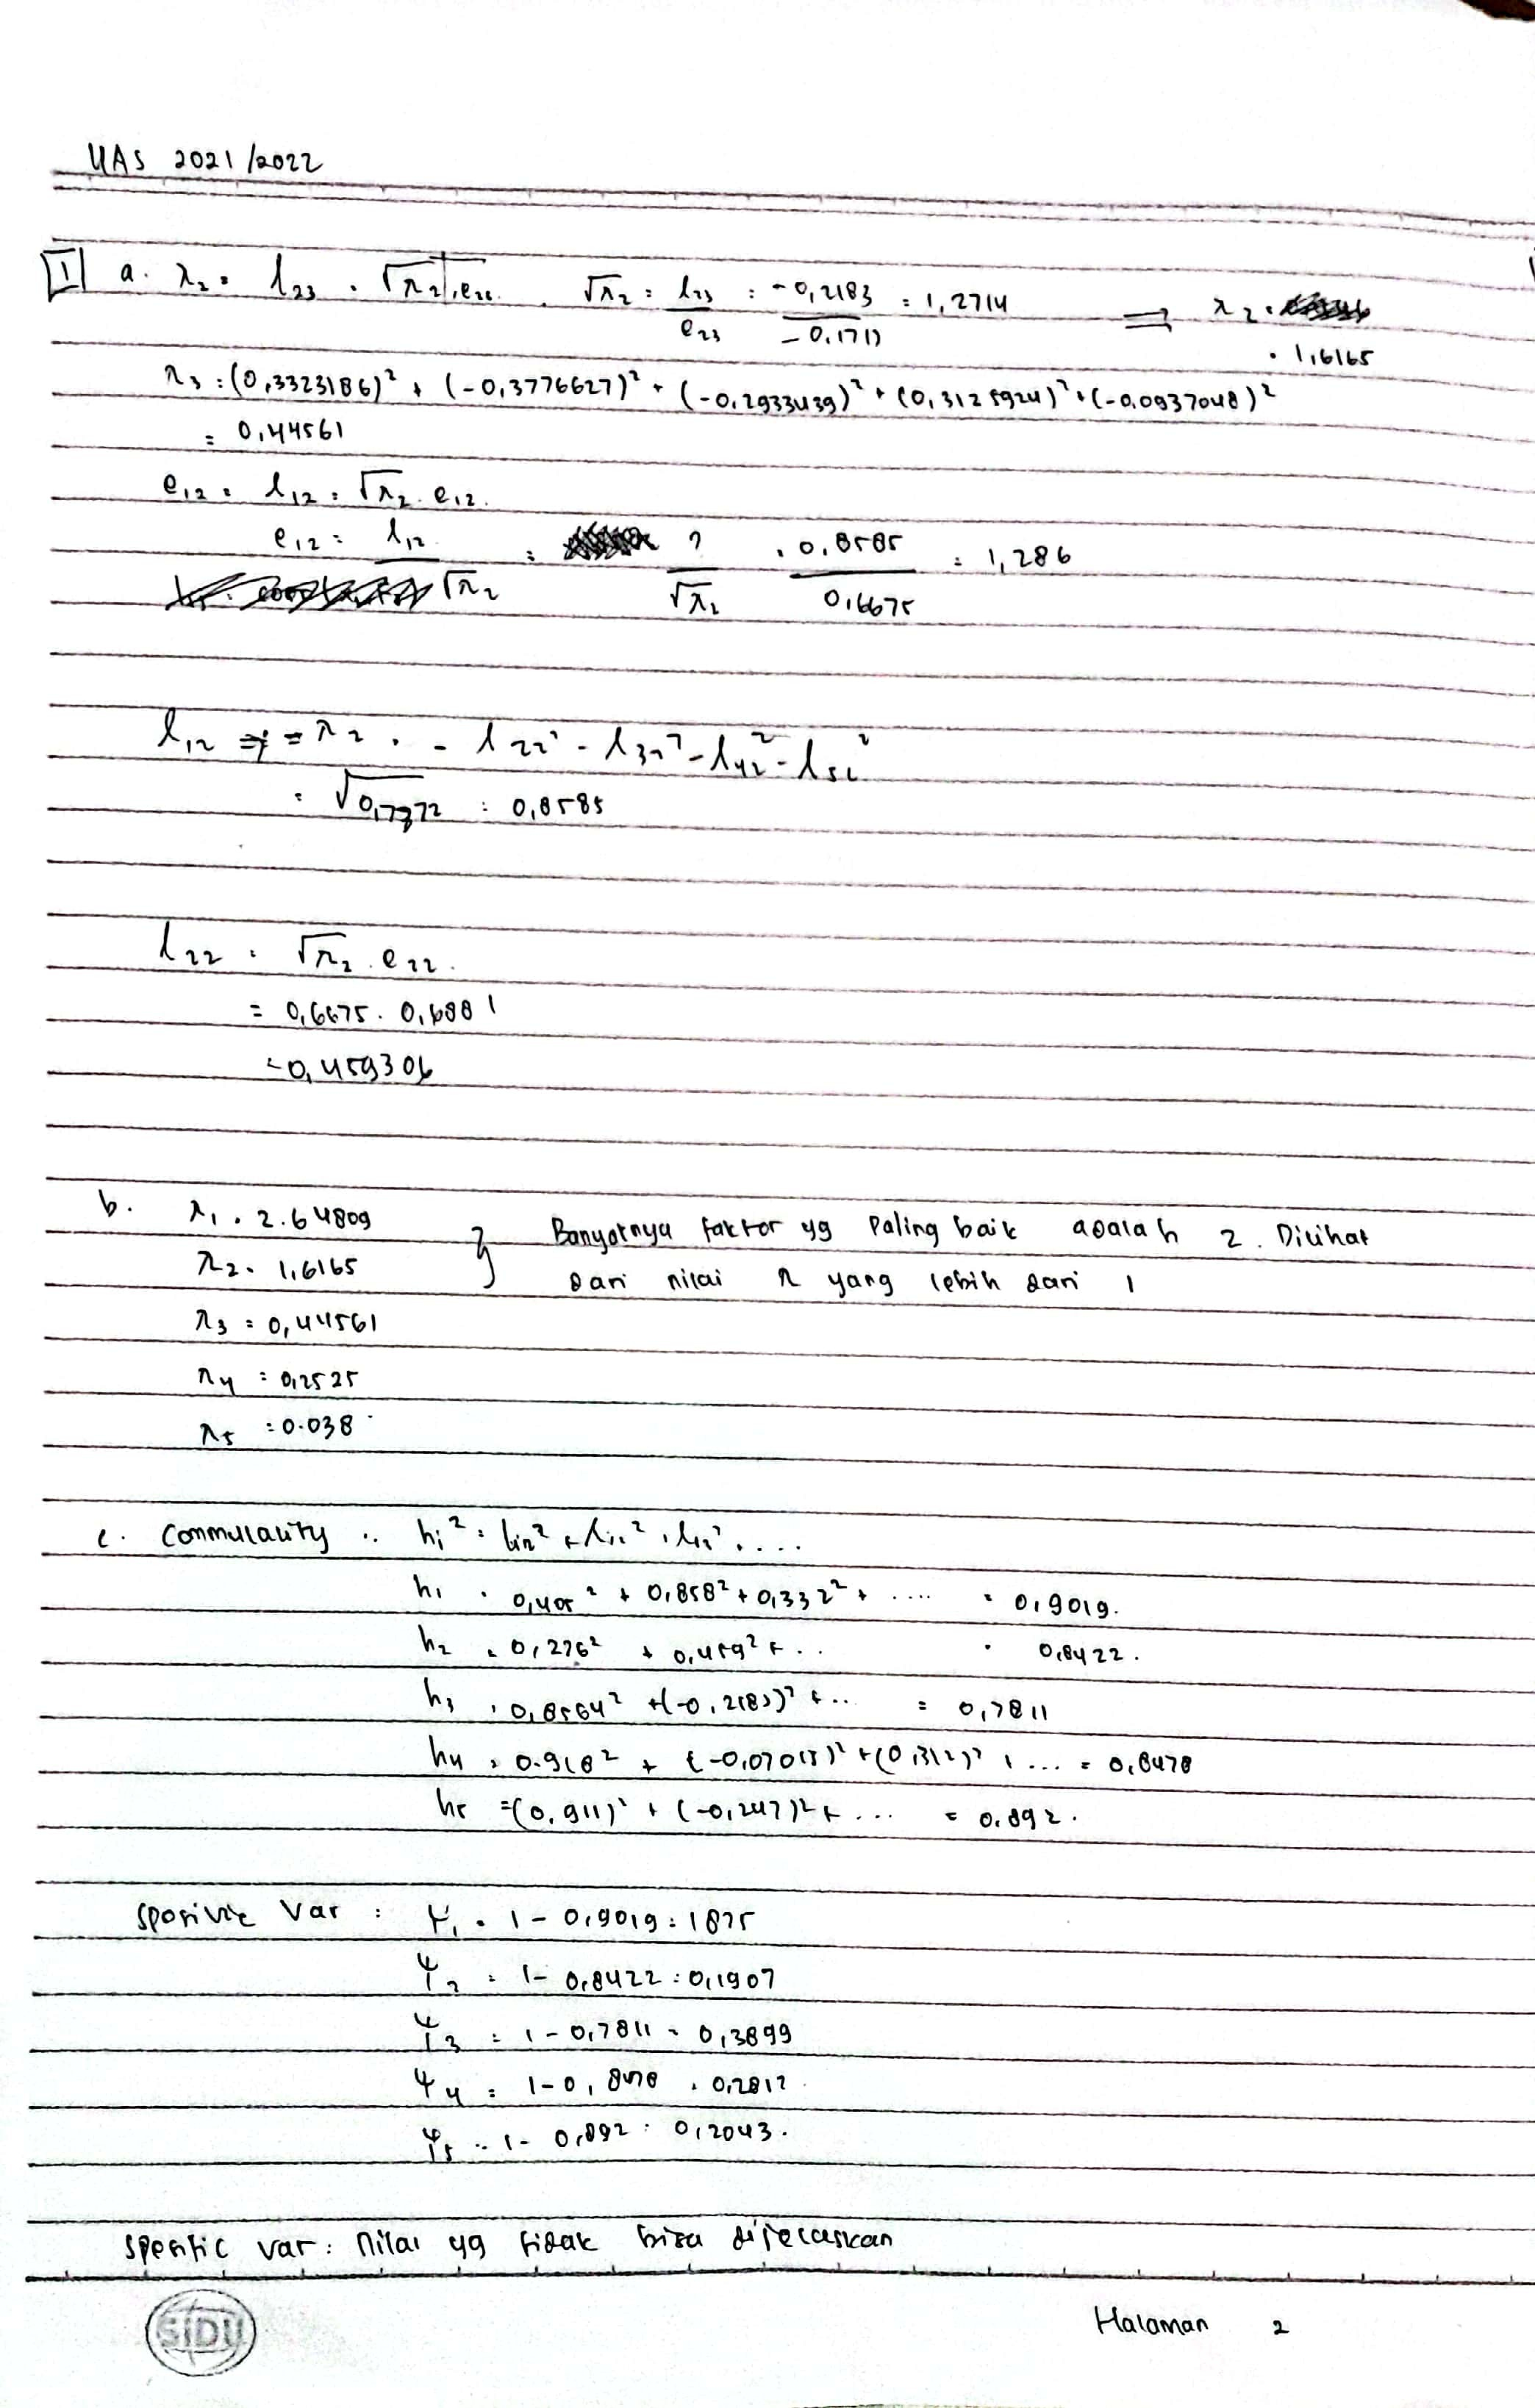 UAS 2021/2022
1 a. λ2 = l23 = √λ2 . e23 . √λ2 = l23 / e23 = -0,2183 / -0,1717 = 1,2714 ⇒ λ2 = 1,6165
λ3 = (0,3323186)² + (-0,3776627)² + (-0,2933439)² + (0,3125924)² + (-0,0937048)²
= 0,44561
e12 = l12 = √λ2 . e12.
e12 = l12 / √λ2 = ? / √λ2 = 0,8585 / 0,6675 = 1,286
l12 ⇒ = λ2 . - l22² - l32² - l42² - l52²
= √0,7372 = 0,8585
l22 = √λ2 . e22.
= 0,6675 . 0,6881
= 0,459306
b. λ1 = 2.64809
λ2 = 1,6165 } Banyaknya faktor yg paling baik adalah 2. Dilihat
dari nilai λ yang lebih dari 1
λ3 = 0,44561
λ4 = 0,2525
λ5 = 0.038
c. Commulality : hi² = li1² + li2² + li3² + ....
h1 = 0,405² + 0,858² + 0,332² + .... = 0,9019.
h2 = 0,276² + 0,459² + .. = 0,8422.
h3 = 0,8564² + (-0,2183)² + .. = 0,7811
h4 = 0.918² + (-0,07013)² + (0,312)² + ... = 0,8478
h5 = (0,911)² + (-0,247)² + ... = 0.892.
Var : Ψ1 = 1 - 0,9019 = 1875
Ψ2 = 1 - 0,8422 = 0,1907
Ψ3 = 1 - 0,7811 = 0,3899
Ψ4 = 1 - 0,8478 = 0,2812
Ψ5 = 1 - 0,892 = 0,2043.
Spesific var : nilai yg tidak bisa dijelaskan
SIDU
Halaman 2